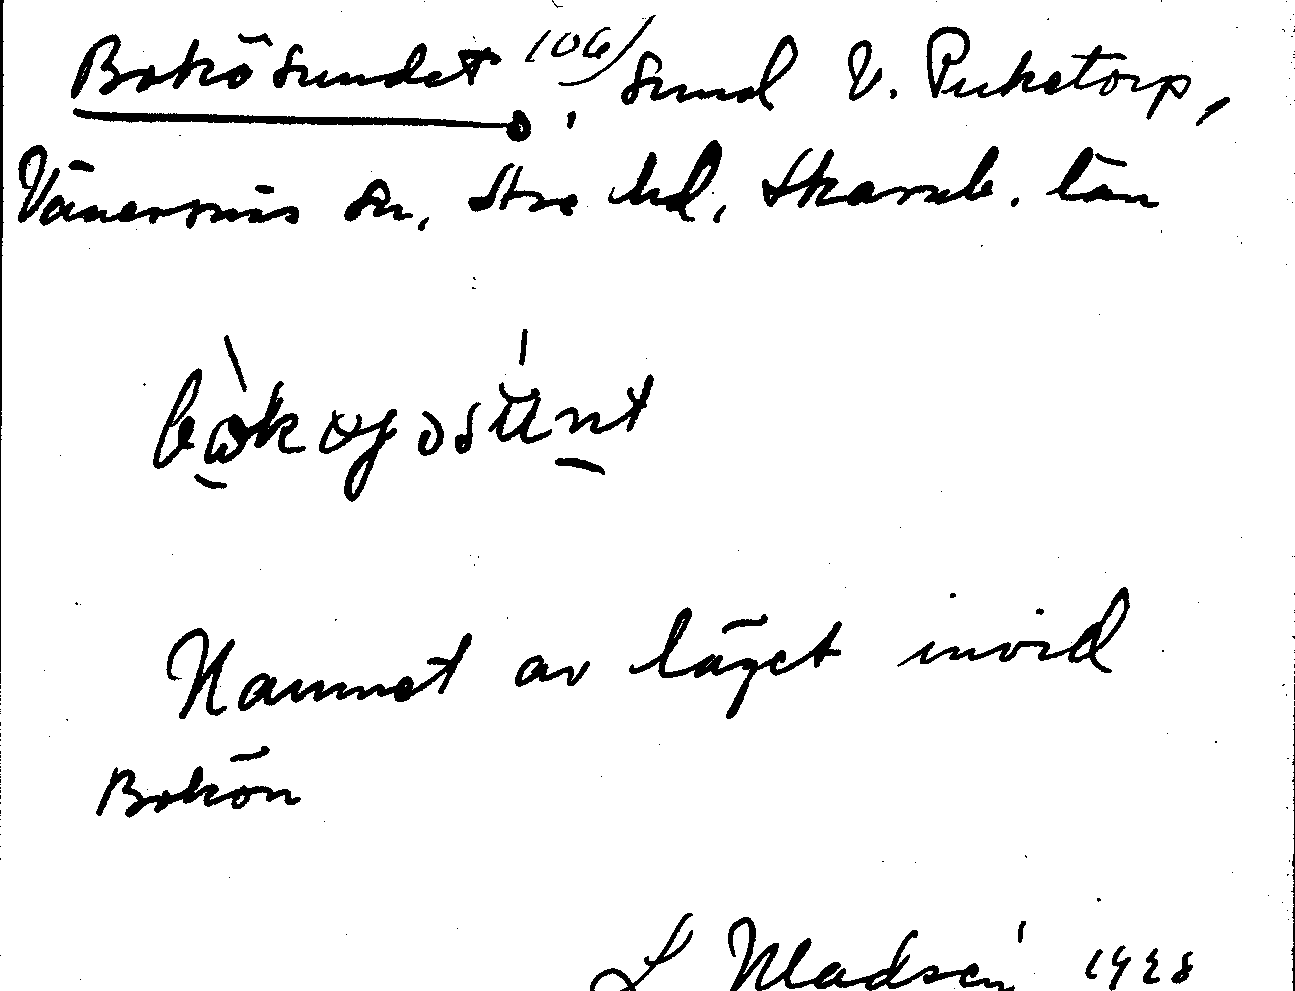 Bokösundet 106/ sund V. Puketorp,
Vänersnäs sn, Åse hd, Skarab. län
Namnet av läget invid
Bokön
L Madsén 1928